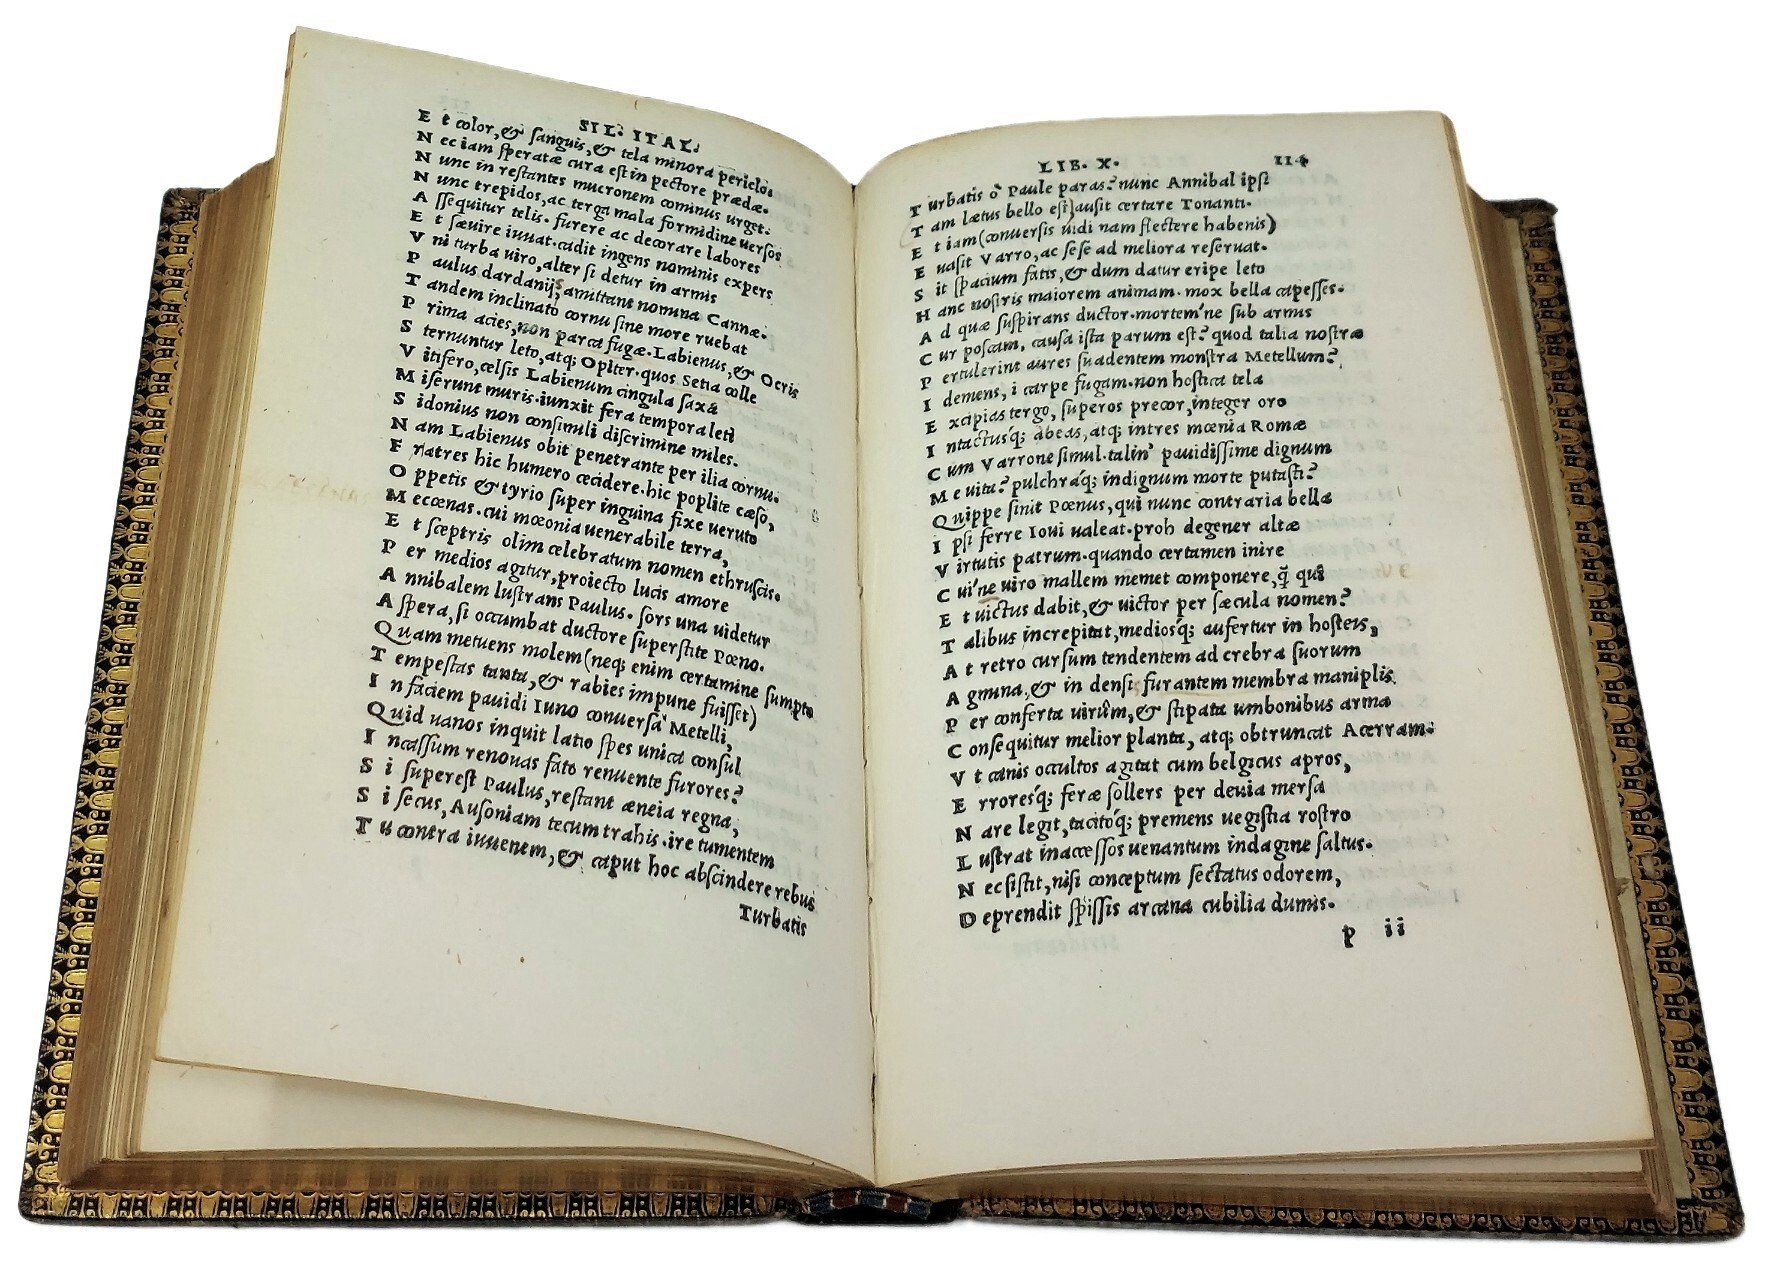 SIL. ITAL.
E t color, & sanguis, & tela minora periclo.
N ec iam speratæ cura est in pectore prædæ.
N unc in restantes mucronem cominus urget:
N unc trepidos, ac terga mala formidine versos
A ssequitur telis. furere ac decorare labores
E t sævire iuuat. cadit ingens nominis expers
V ni turba uiro, alter si detur in armis
P aulus dardanijs, amittant nomina Cannæ.
T andem inclinato cornu sine more ruebat
P rima acies, non parca fugæ. Labienus, & Ocris
S ternuntur leto, atq; Opiter. quos Setia colle
V itifero, celsis Labienum cingula saxa
M iserunt muris. iunxit fera tempora leti
S idonius non consimili discrimine miles.
N am Labienus obit penetrante per ilia cornu.
F ratres hic humero cecidere. hic poplite cæso,
O ppetis & tyrio super inguina fixe ueruto
M ecœnas. cui mœonia uenerabile terra,
E t sceptris olim celebratum nomen ethruscis.
P er medios agitur, proiecto lucis amore
A nnibalem lustrans Paulus. sors una uidetur
A spera, si occumbat ductore superstite Pœno.
Quam metuens molem (neq; enim certamine sumpto
T empestas tanta, & rabies impune fuisset)
I n faciem pauidi Iuno conuersa Metelli,
Quid uanos inquit latio spes unica consul
I ncassum renouas fato renuente furores?
S i superest Paulus, restant æneia regna,
S i secus, Ausoniam tecum trahis. ire tumentem
T u contra iuuenem, & caput hoc abscindere rebus
Turbatis
LIB. X. 114
T urbatis ò Paule paras? nunc Annibal ipsi
T am lætus bello est ausit certare Tonanti.
E t iam (conuersis uidi nam flectere habenis)
E uasit Varro, ac sese ad meliora reseruat.
S it spacium fatis, & dum datur eripe leto
H anc nostris maiorem animam. mox bella capesses.
A d quæ suspirans ductor. mortem'ne sub armis
C ur poscam, causa ista parum est? quod talia nostræ
P ertulerint aures suadentem monstra Metellum?
I demens, i carpe fugam. non hostica tela
E xcipias tergo, superos precor, integer oro
I ntactusq; abeas, atq; intres mœnia Romæ
C um Varrone simul. talin' pauidissime dignum
M e uita? pulchráq; indignum morte putasti?
Quippe sinit Pœnus, qui nunc contraria bella
I psi ferre Ioui ualeat. proh degener altæ
V irtutis patrum. quando certamen inire
C ui'ne uiro mallem memet componere, q̃ qui
E t uictus dabit, & uictor per sæcula nomen?
T alibus increpitat, mediosq; aufertur in hosteis,
A t retro cursum tendentem ad crebra suorum
A gmina, & in densis furantem membra maniplis
P er conferta virûm, & stipata umbonibus arma
C onsequitur melior planta, atq; obtruncat Acerram.
V t canis occultos agitat cum belgicus apros,
E rroresq; feræ sollers per deuia mersa
N are legit, tacitóq; premens uegistia rostro
L ustrat inaccessos uenantum indagine saltus.
N ec sistit, nisi conceptum sectatus odorem,
D eprendit spissis arcana cubilia dumis.
p ii